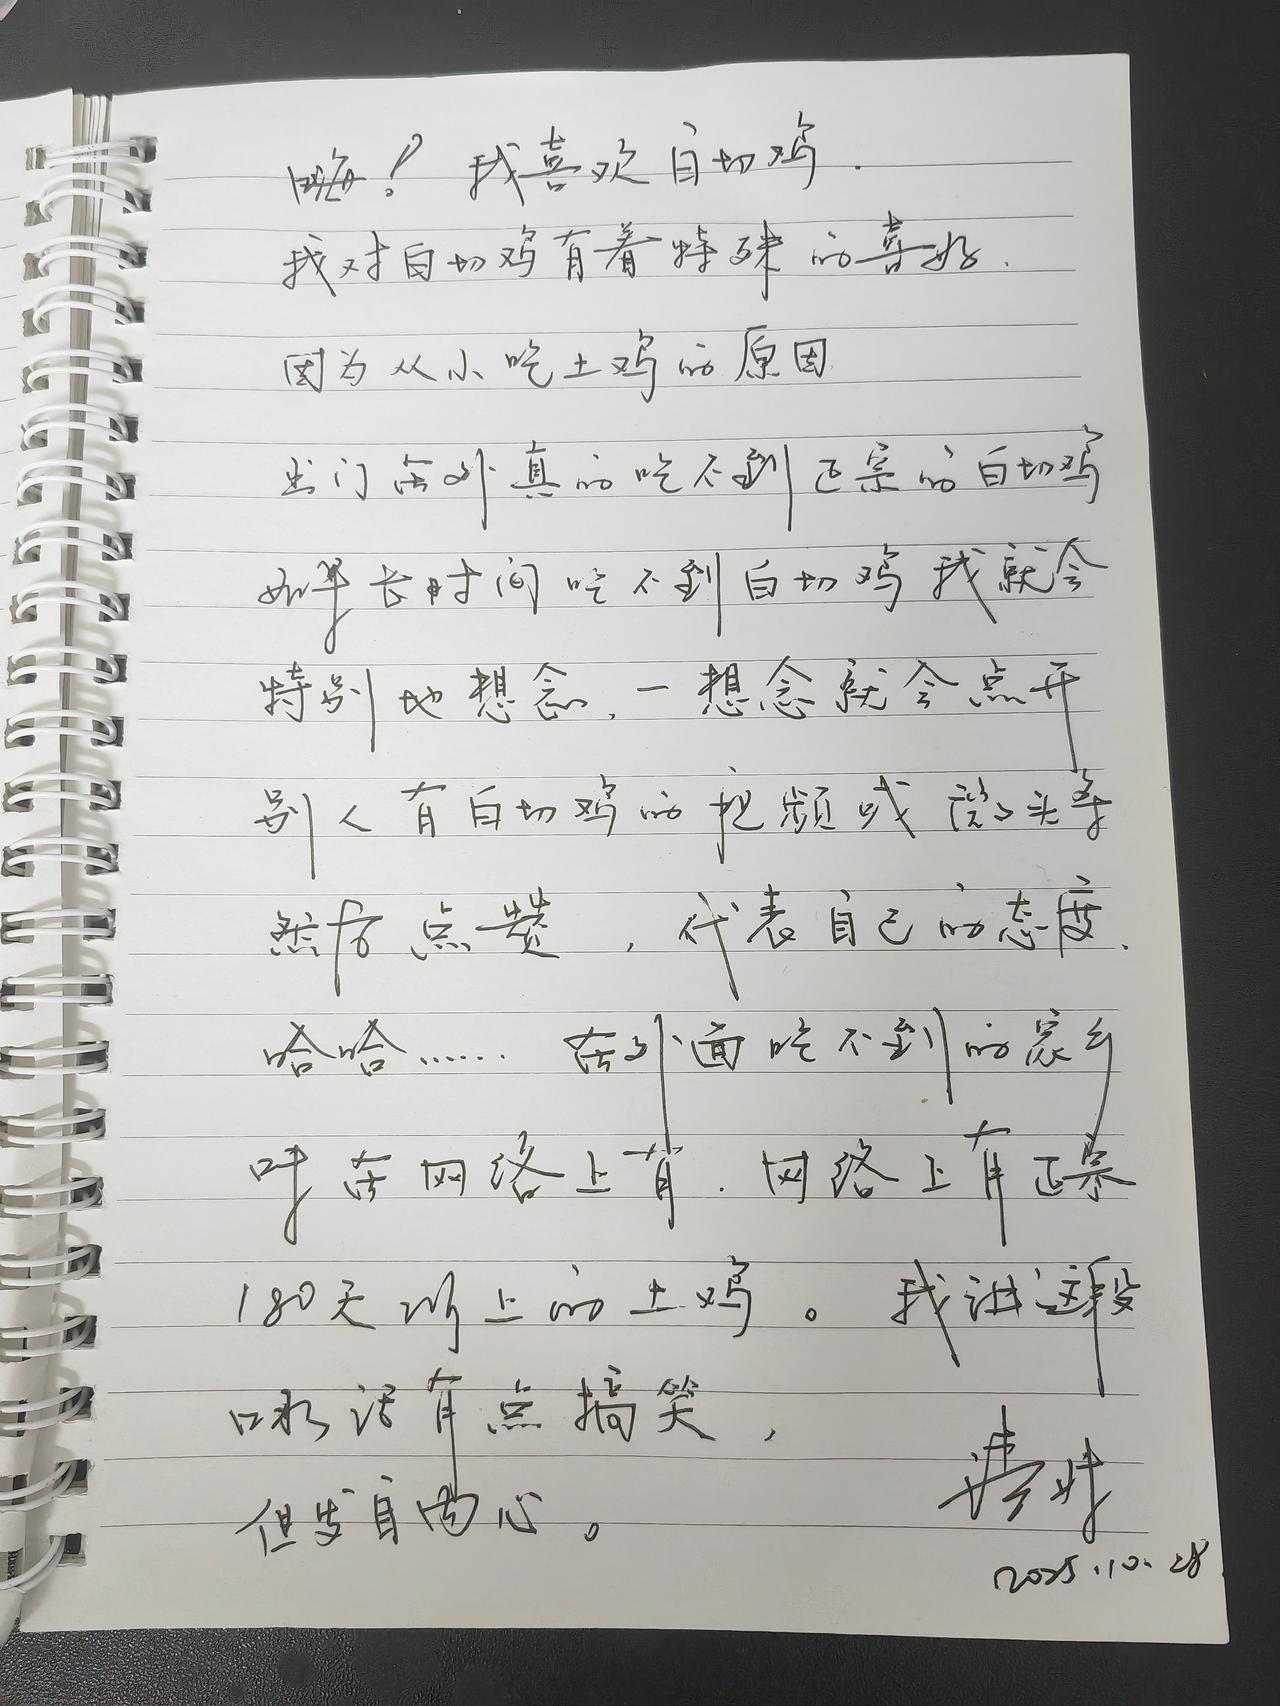 嗨！我喜欢白切鸡.
我对白切鸡有着特殊的喜好.
因为从小吃土鸡的原因
出门在外真的吃不到正宗的白切鸡
如果长时间吃不到白切鸡我就会
特别地想念,一想念就会点开
别人有白切鸡的视频或镜头等
然后点赞,代表自己的态度.
哈哈……在外面吃不到的家乡
味在网络上有.网络上有正宗
180天以上的土鸡。我讲这段
口水话有点搞笑,
但发自内心。
2025.10.28